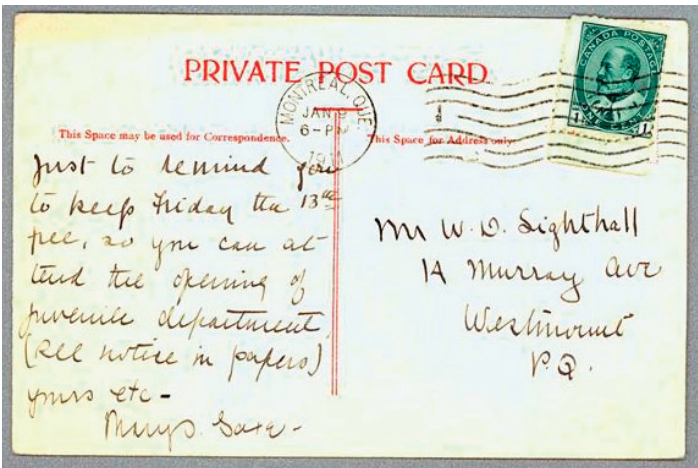 PRIVATE POST CARD
MONTREAL, QUE.
JAN 9
6-PM
1911
CANADA POSTAGE
ONE CENT
1 1
This Space may be used for Correspondence.
This Space for Address only.
Just to remind you
to keep Friday the 13th
free, so you can at
tend the opening of
juvenile department
(see notice in papers)
yours etc -
Mary S. Saxe -
Mr W. D. Lighthall
14 Murray Ave
Westmount
P.Q.